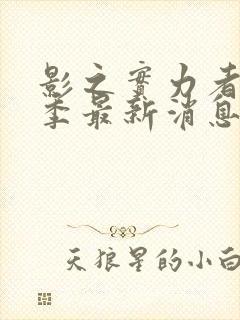 影之實力者
季最新消息
天狼星的小白